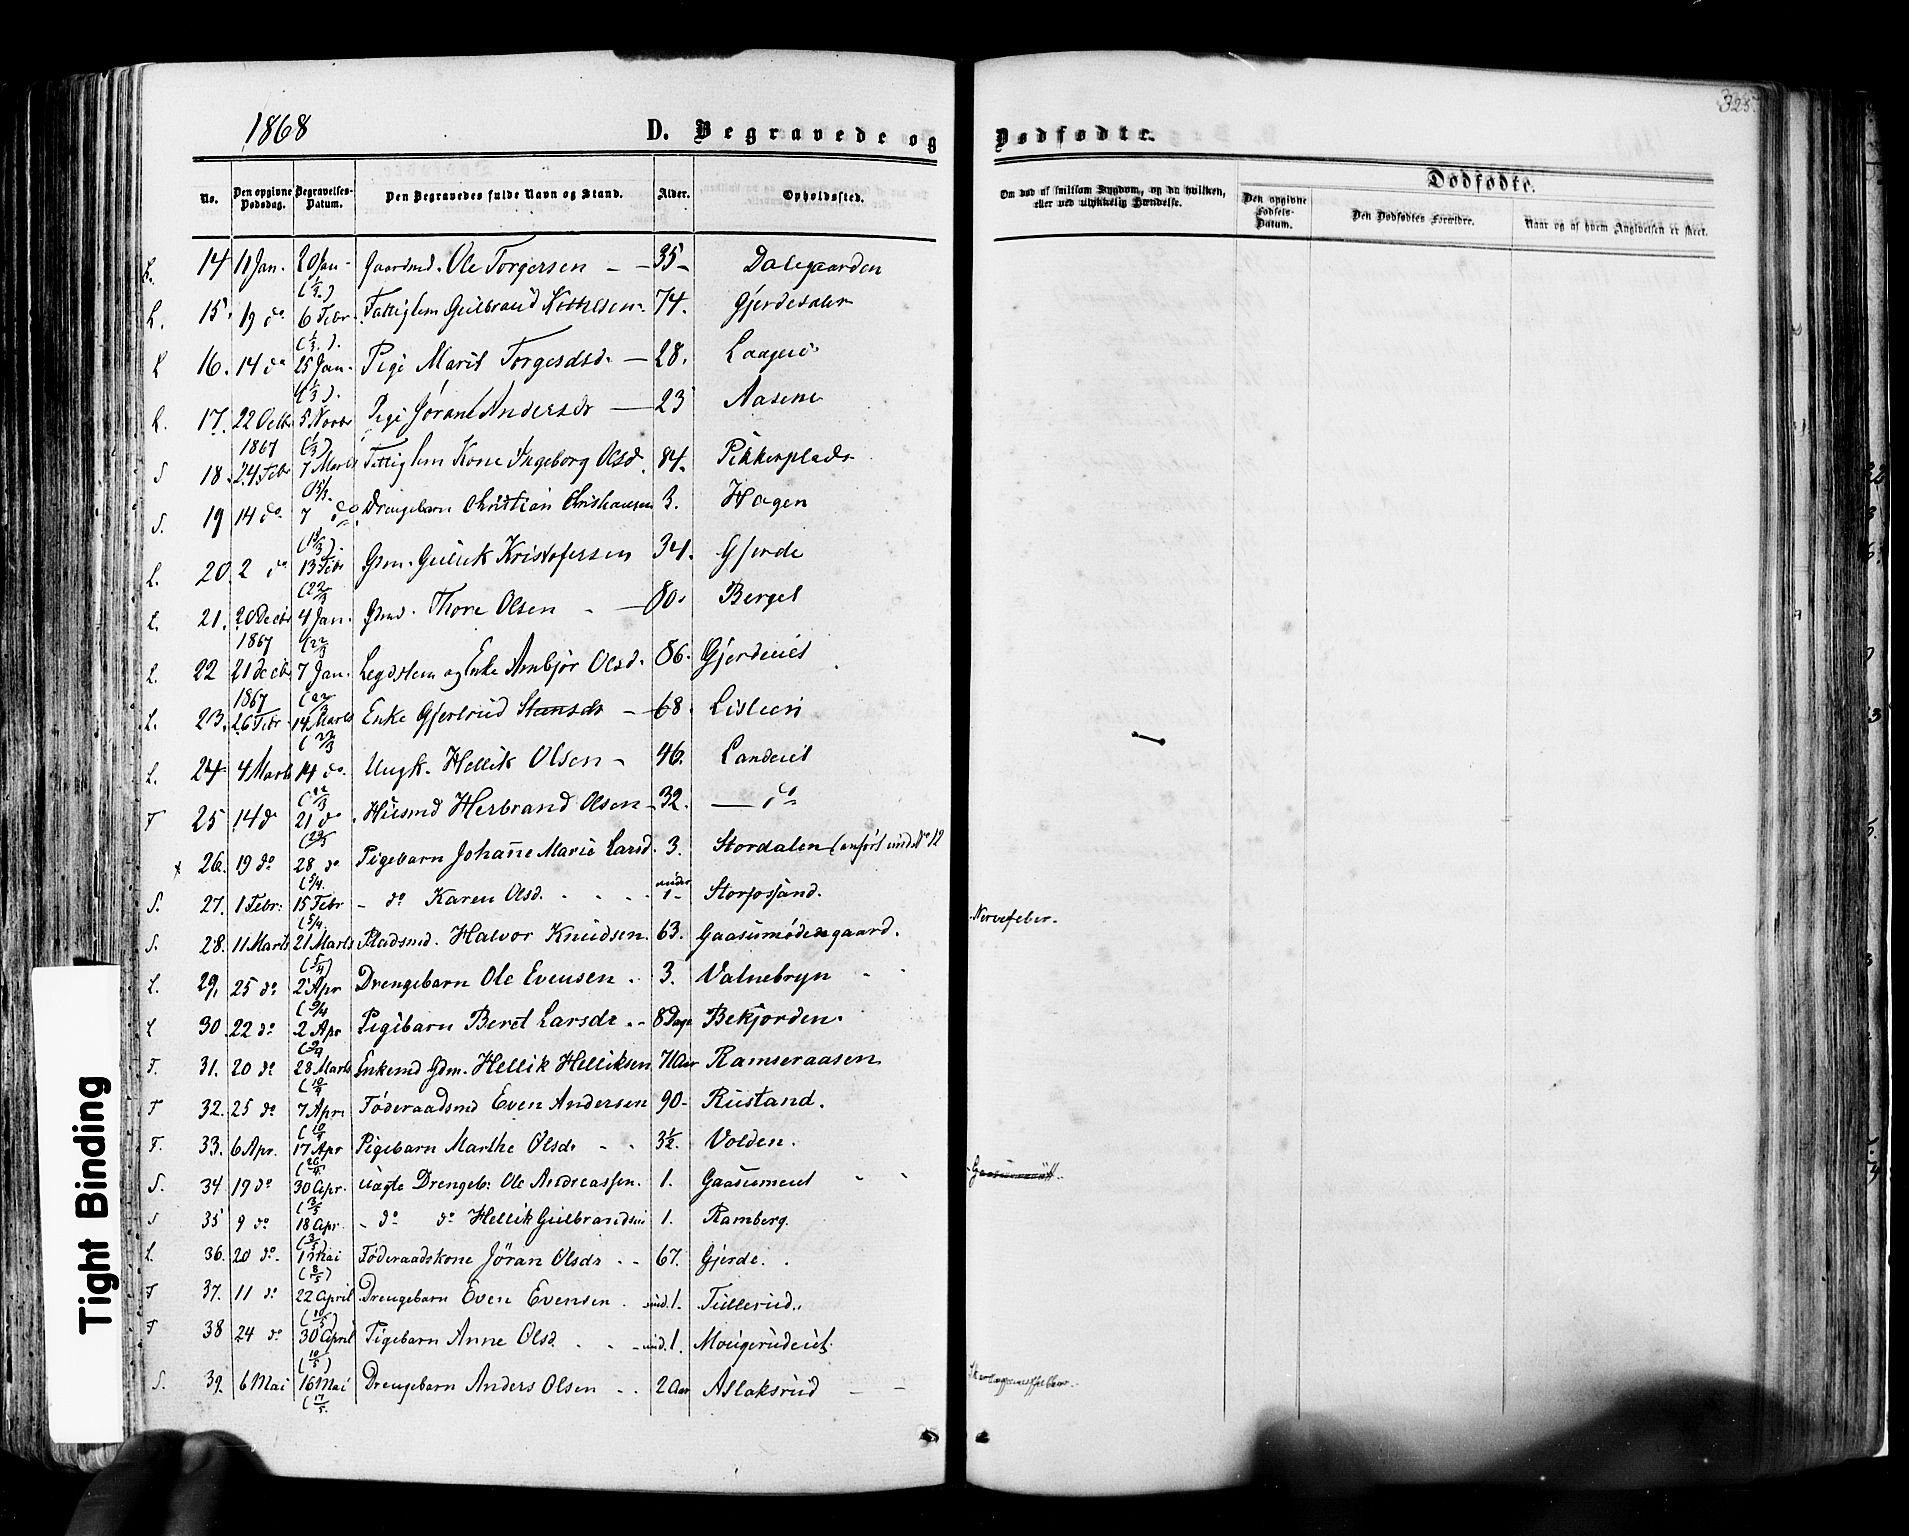 1868
D. Begravede og
Dødfødte.
325.
No. Den opgivne Dødsdag. Begravelses-Datum. Den Begravedes fulde Navn og Stand. Alder. Opholdssted.
Om død af smitsom Sygdom, og da hvilken, eller ved ulykkelig Hændelse.
Dødfødte.
Den opgivne Fødsels-Datum. Den Dødfødtes Forældre. Naar og af hvem Angivelsen er skeet.
L. 14 11 Jan. 20 Jan. Gaardmd. Ole Torgersen 35 Dalegaarden
L. 15. 19 do 6 Febr. Fattiglem Gulbrand 74. Gjerdesalen
L 16. 14 do 25 Jan. Pige Marit 28. Laageie
(1/3).
L. 17. 22 Octbr 1867 5 Novbr Pige Jøran Andersdr 23 Aasene
(1/3)
S 18. 24 Febr 7 Marts Fattiglem Kone Ingeborg Olsd. 84. Pikkerplads
S. 19 14 do 7 do Drengebarn Christian Christiansen 3. Hagen
L. 20. 2 do 13 Febr Gdm. Gullik Kristofersen 34. Gjerde
(22/3
L. 21. 20 Decbr 1867 4 Jan. Gdmd. Thore Olsen 80. Berget
(22/3
L. 22 21 Decbr 1867 7 Jan. Legdslem og Enke Anbjør Olsd. 86. Gjerdeeiet
(22/3
L. 23. 26 Febr 14 Marts Enke Gjertrud 68. Lislien
(22/3
L. 24 4 Marts 14 do Ungk. Hellik Olsen 46. Landeiet
(22/3
F 25 14 do 21 do Huusmd Herbrand Olsen 32. do
26. 19 do 28 do Pigebarn Johanne Marie Larsd. 3. Stordalen (anført under No 12
(5/4.
S. 27. 1 Febr. 15 Febr do Karen Olsd. under 1 Storfosjand.
(5/4.
S. 28. 11 Marts 21 Marts Pladsmd. Halvor Knudsen. 63. Gaasumødegaard. Nervefeber.
(5/4)
L. 29. 25 do 2 Apr Drengebarn Ole Evensen 3. Valnebryn
L 30. 22 do 2 Apr Pigebarn Beret Larsdr 8 Dage Bekjorden.
F. 31. 20 do 28 Marts Enkemd Gdm. Hellik Helliksen 71 Aar Ramseraasen
(10/4
F 32. 25 do 7 Apr. Føderaadsmd Even Andersen 90 Rustand.
(10/4
F. 33. 6 Apr. 17 Apr Pigebarn Marthe Olsdr 3½. Volden.
(26/4.
S. 34 19 do 30 Apr. uægte Drengeb: Ole Andreassen. 1. Gaasumeiet
(3/5
S 35 9 do 18 Apr. do do Hellik Gulbrandsen 1. Ramberg.
(3/5)
L. 36. 20 do 1 Mai Føderaadskone Jöran Olsdr 67. Gjerde.
(8/5)
F 37. 11 do 22 April Drengebarn Even Evensen und. 1. Tullerud.
(10/5)
F 38 24 do 30 April Pigebarn Anne Olsd. und. 1. Mougerudeiet.
(10/5)
S. 39. 6 Mai 16 Mai Drengebarn Anders Olsen 2 Aar Aslaksrud
(17/5.
Tight Binding